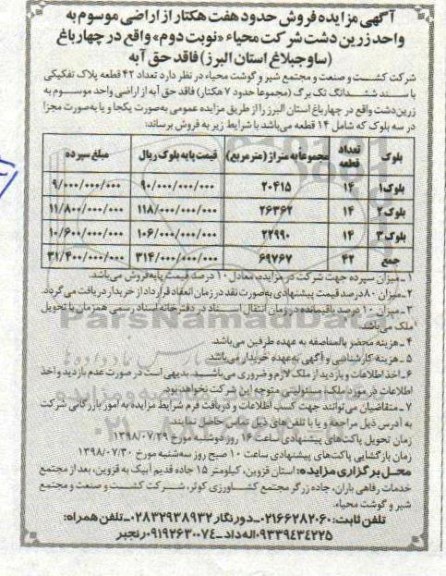 آگهی مزایده فروش حدود هفت هکتار از اراضی موسوم به
واحد زرین دشت شرکت محیاء «نوبت دوم» واقع در چهارباغ
(ساوجبلاغ استان البرز) فاقد حق آبه
شرکت کشت و صنعت و مجتمع شیر و گوشت محیاء در نظر دارد تعداد ۴۲ قطعه پلاک تفکیکی
با سند ششدانگ تک برگ (مجموعا حدود ۷ هکتار) فاقد حق آبه از اراضی واحد موسوم به
زرین‌دشت واقع در چهارباغ استان البرز را از طریق مزایده عمومی به‌صورت یکجا و یا به‌صورت مجزا
در سه بلوک که شامل ۱۴ قطعه می‌باشد با شرایط زیر به فروش برساند:
بلوک تعداد قطعه مجموعا به متراژ (مترمربع) قیمت پایه بلوک ریال مبلغ سپرده
بلوک۱ ۱۴ ۲۰۴۱۵ ۹۰/۰۰۰/۰۰۰/۰۰۰ ۹/۰۰۰/۰۰۰/۰۰۰
بلوک۲ ۱۴ ۲۶۳۶۲ ۱۱۸/۰۰۰/۰۰۰/۰۰۰ ۱۱/۸۰۰/۰۰۰/۰۰۰
بلوک۳ ۱۴ ۲۲۹۹۰ ۱۰۶/۰۰۰/۰۰۰/۰۰۰ ۱۰/۶۰۰/۰۰۰/۰۰۰
جمع ۴۲ ۶۹۷۶۷ ۳۱۴/۰۰۰/۰۰۰/۰۰۰ ۳۱/۴۰۰/۰۰۰/۰۰۰
۱ـ میزان سپرده جهت شرکت در مزایده، معادل ۱۰ درصد قیمت پایه فروش می‌باشد.
۲ـ میزان ۸۰ درصد قیمت پیشنهادی به‌صورت نقد در زمان انعقاد قرارداد از خریدار دریافت می‌گردد.
۳ـ میزان ۲۰ درصد باقیمانده در زمان انتقال اسناد در دفترخانه اسناد رسمی همزمان با تحویل
ملک می‌باشد.
۴ـ هزینه محضر بالمناصفه به عهده طرفین می‌باشد.
۵ـ هزینه کارشناسی و آگهی به‌عهده خریدار می‌باشد.
۶ـ اخذ اطلاعات و بازدید از ملک لازم و ضروری می‌باشد. بدیهی است در صورت عدم بازدید و اخذ
اطلاعات در مورد املاک، مسئولیتی متوجه این شرکت نخواهد بود.
۷ـ متقاضیان می‌توانند جهت کسب اطلاعات و دریافت فرم شرایط مزایده به امور بازرگانی شرکت
به آدرس ذیل مراجعه و یا با تلفن‌های ذیل تماس حاصل نمایند.
زمان تحویل پاکت‌های پیشنهادی ساعت ۱۶ روز دوشنبه مورخ ۱۳۹۸/۰۷/۲۹
زمان بازگشایی پاکت‌های پیشنهادی ساعت ۱۰ صبح روز سه‌شنبه مورخ ۱۳۹۸/۰۷/۳۰
محل برگزاری مزایده: استان قزوین، کیلومتر ۱۵ جاده قدیم آبیک به قزوین، بعد از مجتمع
خدمات رفاهی باران، جاده زرگر مجتمع کشاورزی کوثر، شرکت کشت و صنعت و مجتمع
شیر و گوشت محیاء.
تلفن ثابت: ۰۲۱۶۶۲۸۲۰۶۰ـدورنگار ۰۲۸۳۲۹۳۸۹۳۲ـتلفن همراه:
۰۹۳۳۹۴۳۴۲۲۵ اله‌داد ـ ۰۹۱۹۲۶۳۰۰۷۴ رنجبر
ParsNamadData